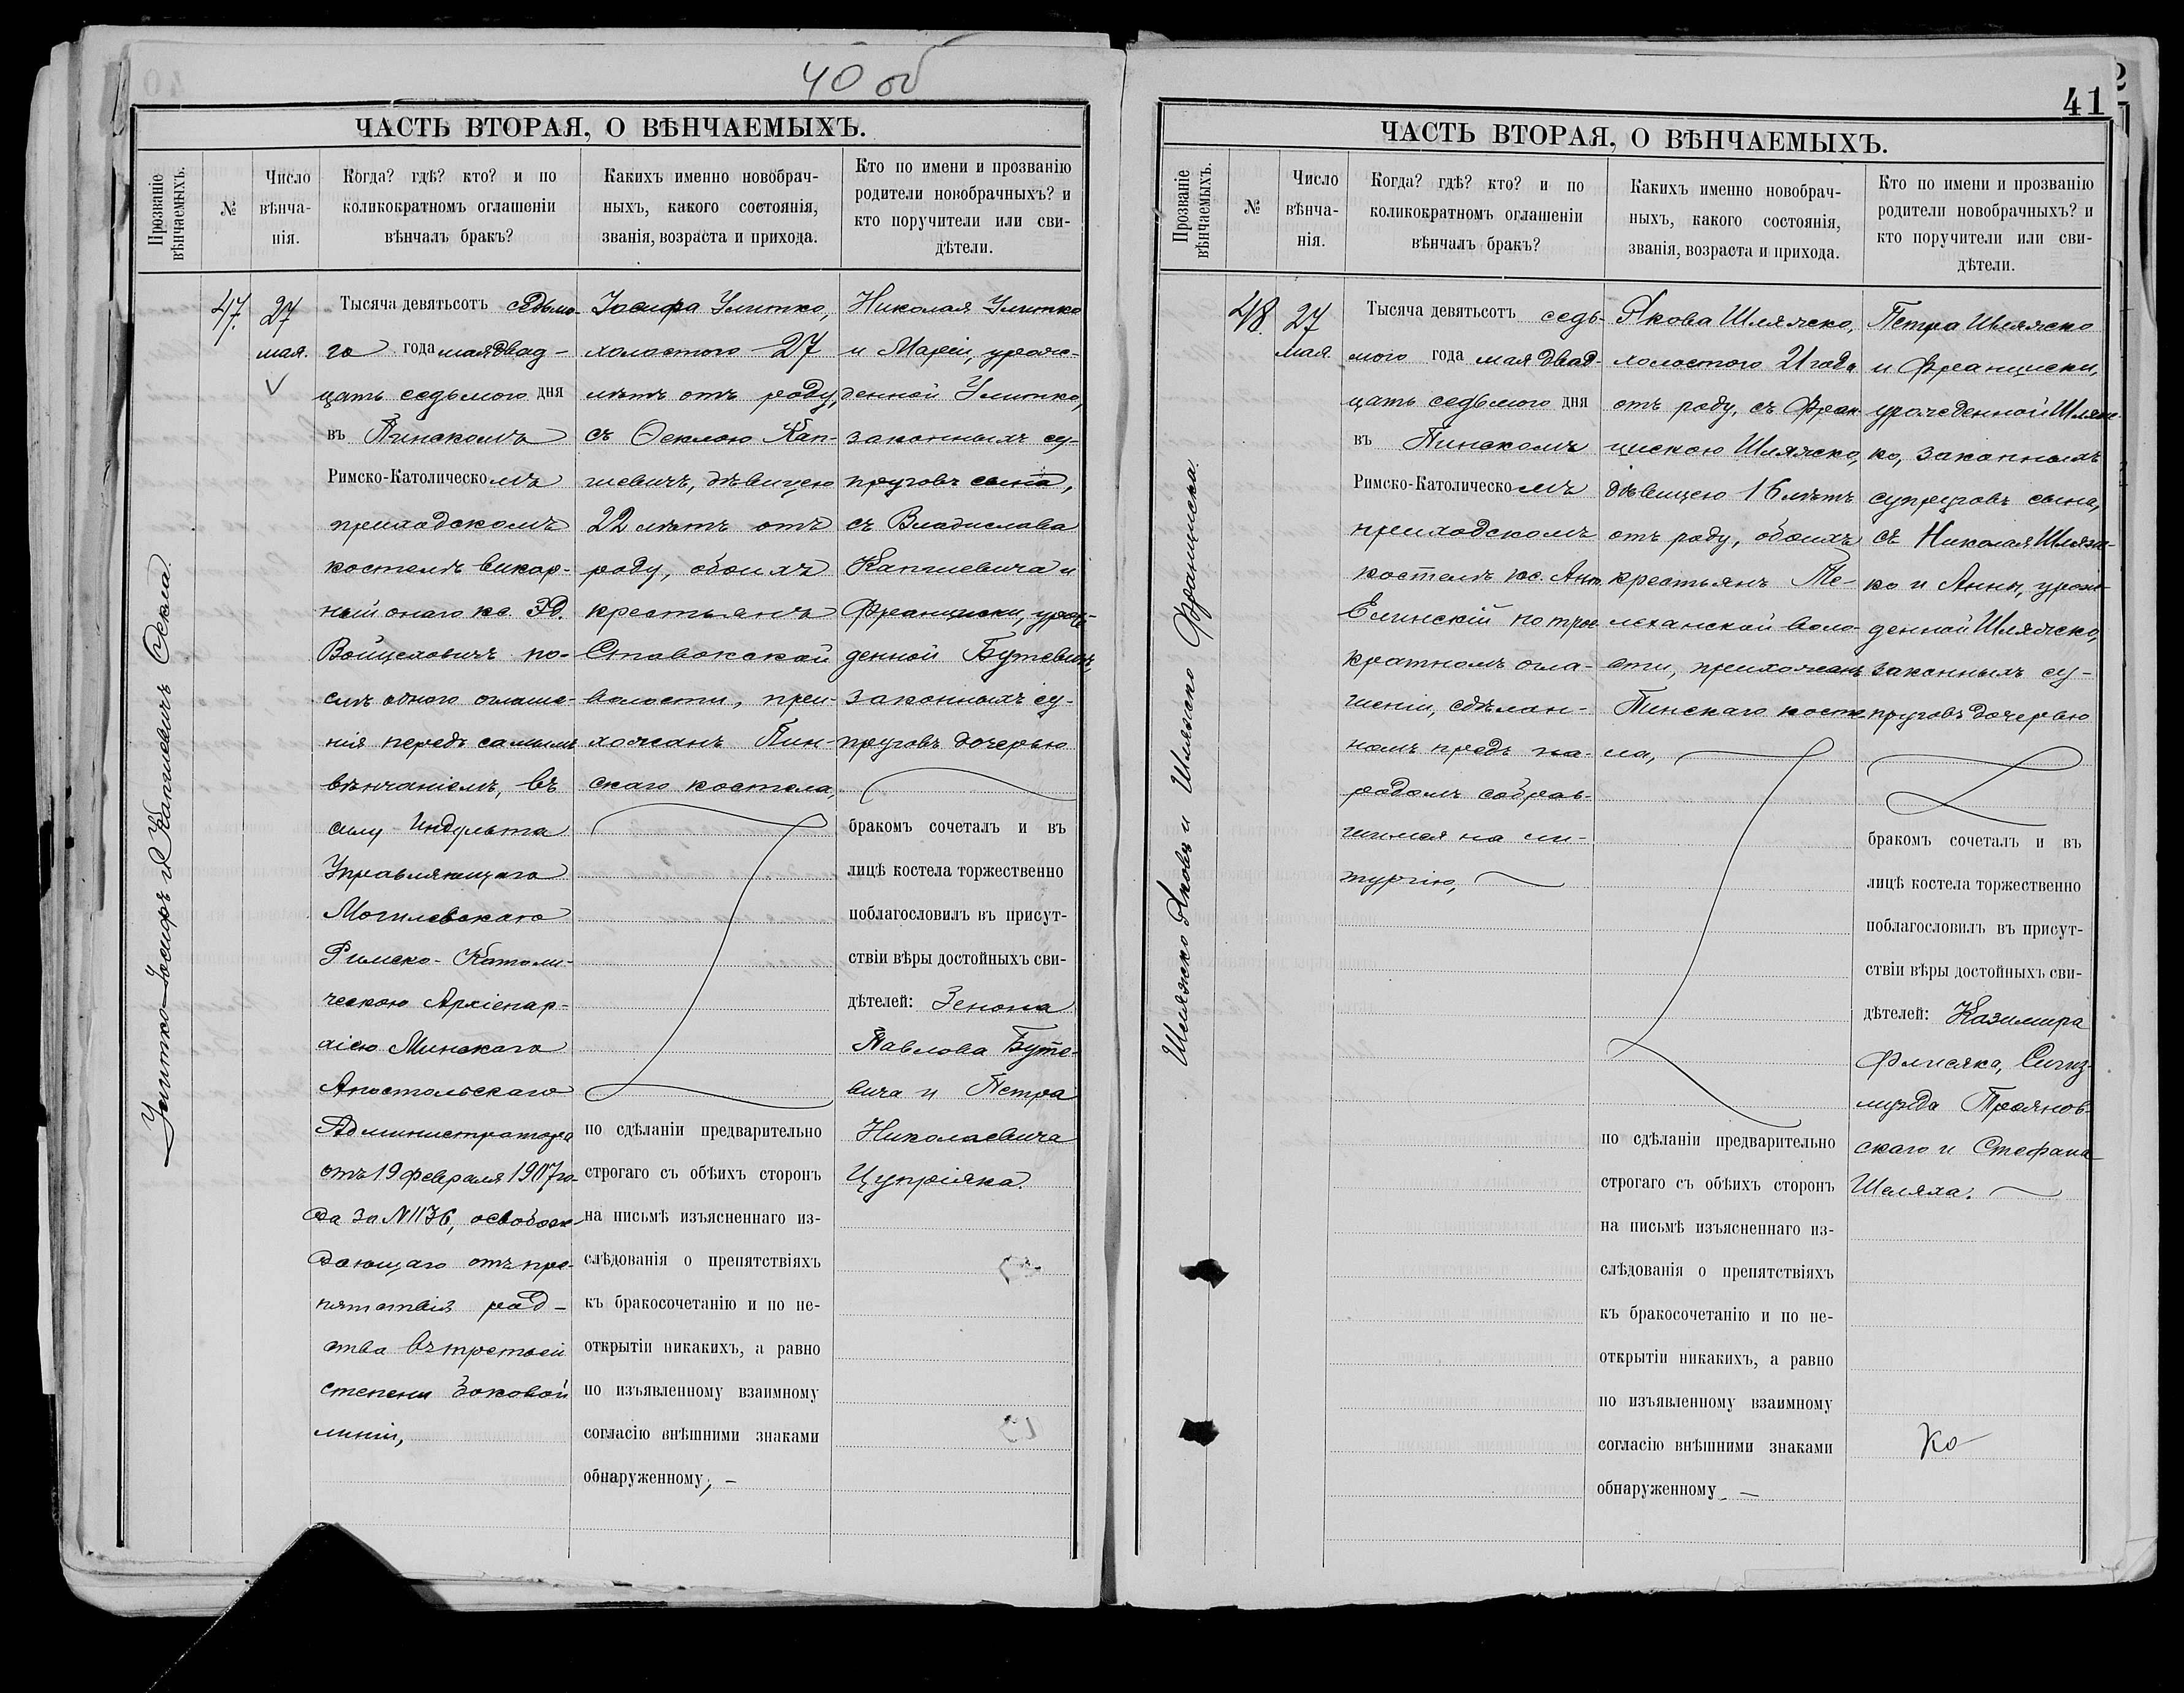 40 об
ЧАСТЬ ВТОРАЯ, О ВѢНЧАЕМЫХЪ.
Прозваніе
вѣнчаемыхъ.
№
Число
вѣнча-
нія.
Когда? гдѣ? кто? и по
коликократномъ оглашеніи
вѣнчалъ бракъ?
Какихъ именно новобрач-
ныхъ, какого состоянія,
званія, возраста и прихода.
Кто по имени и прозванію
родители новобрачныхъ? и
кто поручители или сви-
дѣтели.
Улитко Іосифъ и Капшевичъ Ѳекла.
47.
27
мая.
Тысяча девятьсотъ седьмо-
го года мая двад-
цать седьмого дня
въ Пинскомъ
Римско-Католическомъ
приходскомъ
костелѣ викар-
ный онаго кс. Эд.
Войцеховичъ по-
слѣ одного оглаше-
нія передъ самымъ
вѣнчаніемъ, въ
силу Индульта
Управляющаго
Могилевскою
Римско-Католи-
ческою Архіепар-
хіею Минскаго
Апостольскаго
Администратора
отъ 19 февраля 1907 го-
да за № 1136, освобож-
дающаго отъ пре-
пятствія род-
ства въ третьей
степени боковой
линіи,
Іосифа Улитко,
холостого 27
лѣтъ отъ роду,
съ Ѳеклою Кап-
шевичъ, дѣвицею
22 лѣтъ отъ
роду, обоихъ
крестьянъ
Ставокской
волости, при-
хожанъ Пин-
скаго костела,
по сдѣланіи предварительно
строгаго съ обѣихъ сторонъ
на письмѣ изъясненнаго из-
слѣдованія о препятствіяхъ
къ бракосочетанію и по не-
открытіи никакихъ, а равно
по изъявленному взаимному
согласію внѣшними знаками
обнаруженному, –
Николая Улитко
и Маріи, урож-
денной Улитко,
законныхъ су-
пруговъ сына,
съ Владислава
Капшевича и
Франциски, урож-
денной Бутевичъ,
законныхъ су-
пруговъ дочерью
бракомъ сочеталъ и въ
лицѣ костела торжественно
поблагословилъ въ присут-
ствіи вѣры достойныхъ сви-
дѣтелей: Зенона
Павлова Буте-
вича и Петра
Николаевича
Цупріяка.
41
ЧАСТЬ ВТОРАЯ, О ВѢНЧАЕМЫХЪ.
Прозваніе
вѣнчаемыхъ.
№
Число
вѣнча-
нія.
Когда? гдѣ? кто? и по
коликократномъ оглашеніи
вѣнчалъ бракъ?
Какихъ именно новобрач-
ныхъ, какого состоянія,
званія, возраста и прихода.
Кто по имени и прозванію
родители новобрачныхъ? и
кто поручители или сви-
дѣтели.
Шляжко Яковъ и Шляжко Франциска.
48.
27
мая.
Тысяча девятьсотъ седь-
мого года мая двад-
цать седьмого дня
въ Пинскомъ
Римско-Католическомъ
приходскомъ
костелѣ кс. Ант.
Елинскій по трое-
кратномъ огла-
шеніи, сдѣлан-
номъ предъ на-
родомъ собрав-
шимся на ли-
тургію,
Якова Шляжко,
холостого 21 года
отъ роду, съ Фран-
цискою Шляжко,
дѣвицею 16 лѣтъ
отъ роду, обоихъ
крестьянъ Те-
леханской воло-
сти, прихожанъ
Пинскаго косте-
ла,
по сдѣланіи предварительно
строгаго съ обѣихъ сторонъ
на письмѣ изъясненнаго из-
слѣдованія о препятствіяхъ
къ бракосочетанію и по не-
открытіи никакихъ, а равно
по изъявленному взаимному
согласію внѣшними знаками
обнаруженному –
Петра Шляжко
и Франциски,
урожденной Шляж-
ко, законныхъ
супруговъ сына,
съ Николая Шляж-
ко и Анны, урож-
денной Шляжко,
законныхъ су-
пруговъ дочерью
бракомъ сочеталъ и въ
лицѣ костела торжественно
поблагословилъ въ присут-
ствіи вѣры достойныхъ сви-
дѣтелей: Казимира
Флисяка, Сигиз-
мунда Троянов-
скаго и Стефана
Шеляха.
Ко